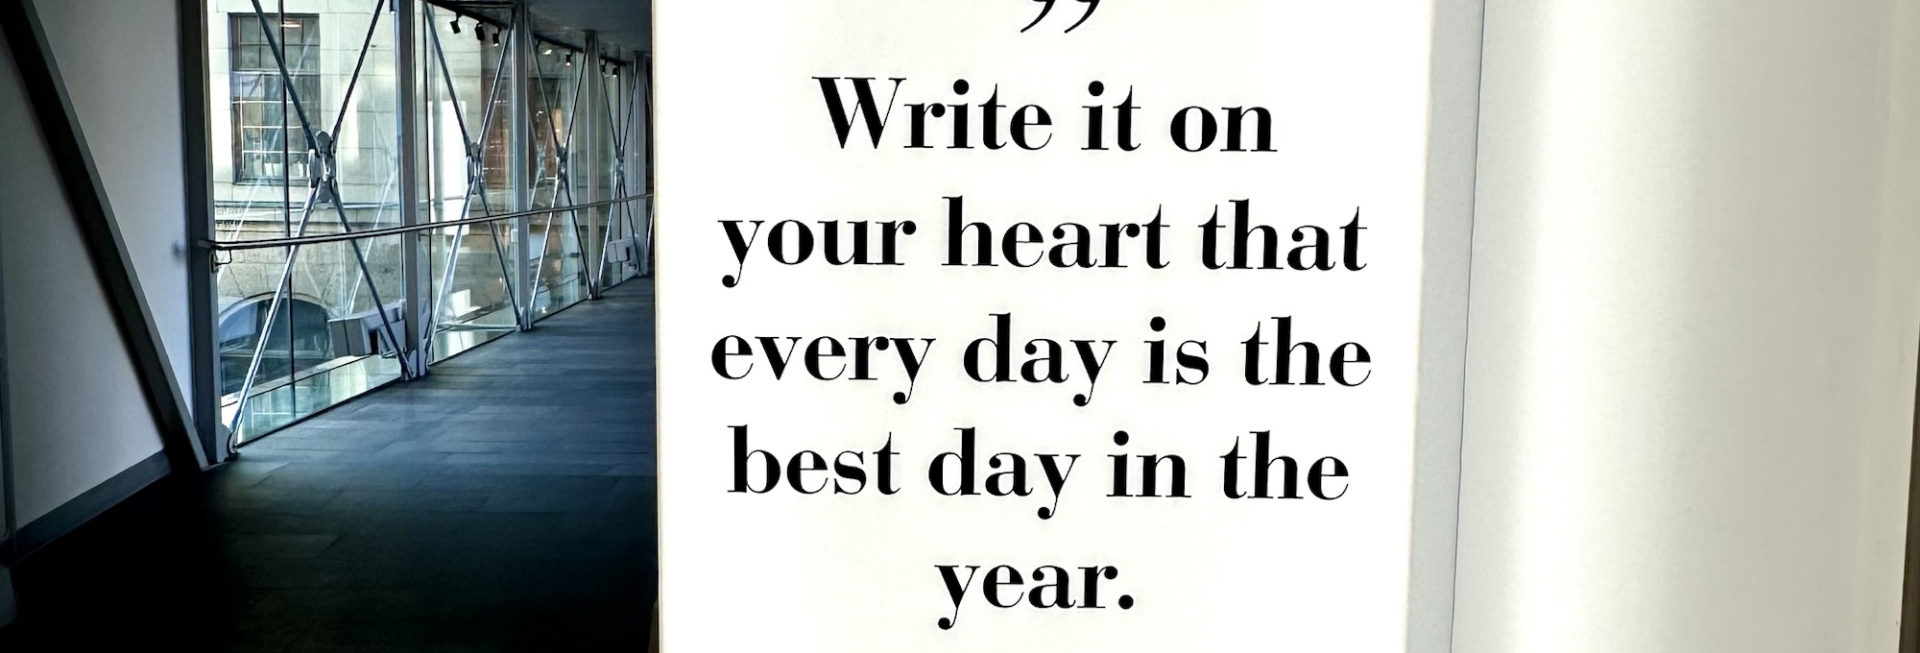 ”
Write it on
your heart that
every day is the
best day in the
year.